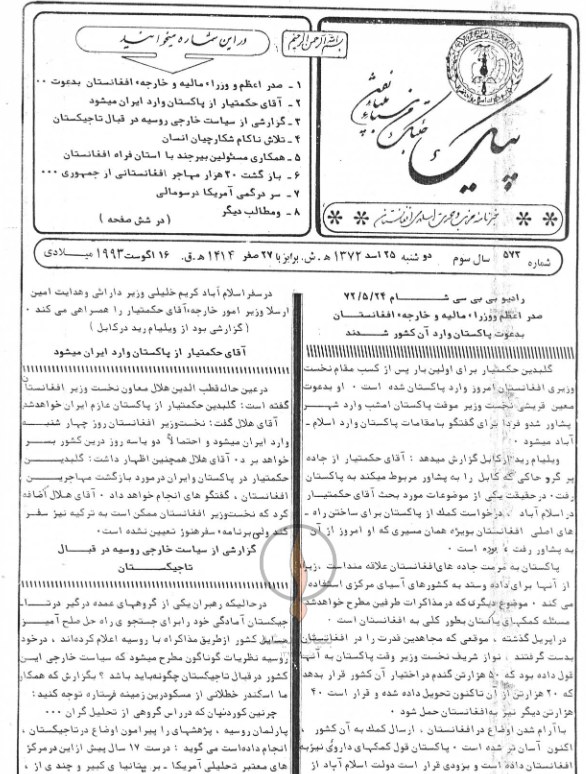 بسم الله الرحمن الرحیم
در این شماره میخوانید
۱ - صدر اعظم و وزراء مالیه و خارجهء افغانستان بدعوت ۰۰
۲ - آقای حکمتیار از پاکستان وارد ایران میشود
۳ - گزارشی از سیاست خارجی روسیه در قبال تاجیکستان
۴ - تلاش ناکام شکارچیان انسان
۵ - همکاری مسئولین بیرجند با استان فراه افغانستان
۶ - باز گشت ۲۰ هزار مهاجر افغانستانی از جمهوری ۰۰۰
۷ - سر درگمی آمریکا در سومالی
۸ - ومطالب دیگر
( در شش صفحه )
پیک
خبرنامه حزب وحدت اسلامی افغانستان
شماره ۵۷۲ سال سوم دو شنبه ۲۵ اسد ۱۳۷۲ ه.ش. برابر با ۲۷ صفر ۱۴۱۴ ه.ق. ۱۶ اگوست ۱۹۹۳ میلادی
رادیو بی بی سی شام ۷۲/۵/۲۴
صدر اعظم ووزراء مالیه و خارجهء افغانستان
بدعوت پاکستان وارد آن کشور شدند
گلبدین حکمتیار برای اولین بار پس از کسب مقام نخست
وزیری افغانستان امروز وارد پاکستان شده است ۰ او بدعوت
معین قریشی نخست وزیر موقت پاکستان امشب وارد شهر
پشاور شدو فردا برای گفتگو بامقامات پاکستان وارد اسلام -
آباد میشود ۰
ویلیام رید ازکابل گزارش میدهد : آقای حکمتیار از جاده
پر گرو حاکی که کابل را به پشاور مربوط میکند به پاکستان
رفت ۰ درحقیقت یکی از موضوعات مورد بحث آقای حکمتیار
در اسلام آباد ، درخواست کمک از پاکستان برای ساختن راه -
های اصلی افغانستان بویژه همان مسیری که او امروز از آن
به پشاور رفت ، بوده است ۰
پاکستان به مرمت جاده های افغانستان علاقه منداست ، زیرا
از آنها برای داد وستد به کشورهای آسیای مرکزی استفاده
می کند ۰ موضوع دیگری که در مذاکرات طرفین مطرح خواهدشد
مسئله کمکهای پاکستان بطور کلی به افغانستان است ۰
دراپریل گذشته ، موقعی که مجاهدین قدرت را در افغانستان
بدست گرفتند ، نواز شریف نخست وزیر وقت پاکستان به آنها
قول داده بود که ۵۰ هزارتن گندم در اختیار آن کشور قرار بدهد
که ۲۰ هزارتن از آن تاکنون تحویل داده شده و قرار است ۴۰
هزارتن دیگر نیز به افغانستان حمل شود ۰
با آرام شدن اوضاع در افغانستان ، ارسال کمک به آن کشور ،
اکنون آسان تر شده است ۰ پاکستان قول کمکهای داروئی نیز به
افغانستان داده است و بزودی قرار است دولت اسلام آباد از
درسفر اسلام آباد کریم خلیلی وزیر دارائی وهدایت امین
ارسلا وزیر امور خارجه، آقای حکمتیار را همراهی می کند ۰
( گزارشی بود از ویلیام رید درکابل )
آقای حکمتیار از پاکستان وارد ایران میشود
درعین حال، قطب الدین هلال معاون نخست وزیر افغانستان
گفته است : گلبدین حکمتیار از پاکستان عازم ایران خواهدشد
آقای هلال گفت : نخست وزیر افغانستان روز چهار شنبه
وارد ایران میشود و احتمالاً دو یاسه روز درین کشور بسر
خواهد بر د ۰ آقای هلال همچنین اظهار داشت : گلبدین
حکمتیار در پاکستان وایران در مورد بازگشت مهاجرین
افغانستان ، گفتگو های انجام خواهد داد ۰ آقای هلال اضافه
کرد که نخست وزیر افغانستان ممکن است به ترکیه نیز سفر
کند ولی برنامهء سفر هنوز تعیین نشده است ۰
گزارشی از سیاست خارجی روسیه در قبال
تاجیکستان
درحالیکه رهبران یکی از گروههای عمده درگیر در تا-
جیکستان آمادگی خود را برای جستجو ی راه حل صلح آمیز
کشور ازطریق مذاکراه با روسیه اعلام کرده اند ، درخود
روسیه نظریات گوناگون مطرح میشود که سیاست خارجی این
کشور درقبال تاجیکستان چگونه باید باشد ؟ بگزارش که همکار
ما اسکندر خطلانی از مسکودرین زمینه فرستاده توجه کنید :
چرنین کوردنیان که در راس گروهی از تحلیل گران ۰۰۰
پارلمان روسیه ، پژهشهای را پیر امون اوضاع در تاجیکستان ،
انجام داده است می گوید : درست ۱۷ سال پیش از این در مرکز
های معتبر تحلیلی آمریکا ، بر یتانیا ی کبیر و چند ی از ،